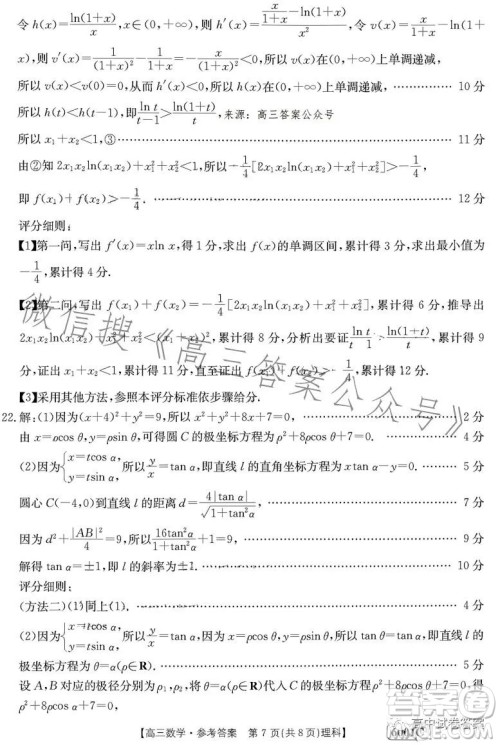 令 h(x)=ln(1+x)/x, x∈(0,+∞), 则 h′(x)=(x/(1+x)-ln(1+x))/x², 令 v(x)=x/(1+x)-ln(1+
x), 则 v′(x)=1/(1+x)²-1/(1+x)=-x/(1+x)²<0, 所以 v(x)在(0,+∞)上单调递减,
所以 v(x)<v(0)=0, 从而 h′(x)<0, 所以 h(x)在(0,+∞)上单调递减, 10分
所以 h(t)<h(t-1), 即 ln t/(t-1)>ln(1+t)/t, 来源:高三答案公众号
所以 x₁+x₂<1,③ 11分
由②知 2x₁x₂ln(x₁x₂)+x₁²+x₂²<1, 所以-1/4[2x₁x₂ln(x₁x₂)+x₁²+x₂²]>-1/4,
即 f(x₁)+f(x₂)>-1/4. 12分
评分细则:
【1】第一问,写出 f′(x)=xln x,得1分,求出 f(x)的单调区间,累计得3分,求出最小值为
-1/4,累计得4分.
【2】第二问,写出 f(x₁)+f(x₂)=-1/4[2x₁x₂ln(x₁x₂)+x₁²+x₂²],累计得6分,推导出
2x₁x₂ln(x₁x₂)+x₁²+x₂²<(x₁+x₂)²,累计得8分,分析出要证 ln t/(t-1)>ln(1+t)/t,累计得9
分,证出 x₁+x₂<1,累计得11分,直至证出 f(x₁)+f(x₂)>-1/4,累计得12分.
【3】采用其他方法,参照本评分标准依步骤给分.
22.解:(1)因为(x+4)²+y²=9,所以 x²+y²+8x+7=0, 2分
由 x=ρcos θ,y=ρsin θ,可得圆 C 的极坐标方程为 ρ²+8ρcos θ+7=0. 4分
(2)因为{x=tcos α, y=tsin α,所以 y/x=tan α,即直线 l 的直角坐标方程为 xtan α-y=0. 5分
圆心 C(-4,0)到直线 l 的距离 d=4|tan α|/√(1+tan²α), 7分
因为 d²+|AB|²/4=9,所以 16tan²α/(1+tan²α)+1=9, 9分
解得 tan α=±1,即 l 的斜率为±1. 10分
评分细则:
(方法二)(1)同上(1). 4分
(2)因为{x=tcos α, y=tsin α,所以 y/x=tan α,因为 x=ρcos θ,y=ρsin θ,所以直线 l 的
极坐标方程为 θ=α(ρ∈R). 5分
设 A,B 对应的极径分别为 ρ₁,ρ₂,将 θ=α(ρ∈R)代入 C 的极坐标方程 ρ²+8ρcos θ+7=0,
【高三数学·参考答案 第7页(共8页)理科】
微信搜《高三答案公众号》
高中试卷答案